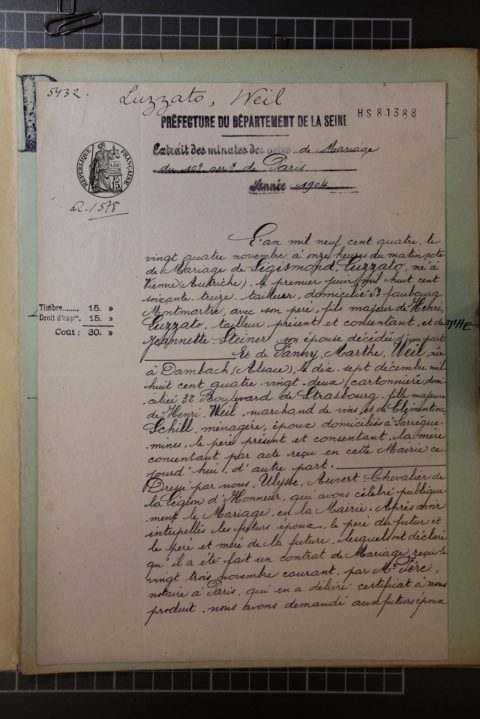 5432.
Luzzato, Weil
PRÉFECTURE DU DÉPARTEMENT DE LA SEINE
HS81388
Extrait des minutes des actes de Mariage
du 10e arrt de Paris
Année 1904
RÉPUBLIQUE FRANÇAISE
a.1578
L'an mil neuf cent quatre, le
vingt quatre novembre à onze heures du matin, acte
de Mariage de Sigismond Luzzato, né à
Vienne (Autriche), le premier juin mil huit cent
soixante treize, tailleur, domicilié 13 faubourg
Montmartre, avec son père, fils majeur de Henri
Luzzato, tailleur, présent et consentant, et de
Jeannette Steiner, son épouse décédée, d'une part
Et de Fanny, Marthe, Weil, née
à Dambach (Alsace), le dix-sept décembre mil
huit cent quatre-vingt-deux, cartonnière, domi-
ciliée 32 Boulevard de Strasbourg, fille majeure
de Henri Weil, marchand de vins, et de Clémentine
Schill, ménagère, époux domiciliés à Sarregue-
mines, le père présent et consentant, la mère
consentant par acte reçu en cette Mairie ce
jourd'hui, d'autre part.
Dressé par nous, Ulysse, Auvert Chevalier de
la Légion d'Honneur, qui avons célébré publique
ment le Mariage en la Mairie. Après avoir
interpellés les futurs époux, le père du futur et
le père et mère de la future, lesquels ont déclaré
qu'il a été fait un contrat de Mariage, reçu le
vingt trois novembre courant, par Me
notaire à Paris, qui en a délivré certificat à nous
produit, nous avons demandé aux futurs époux
Timbre...... 15. »
Droit d'expon. 15. »
Coût: 30. »